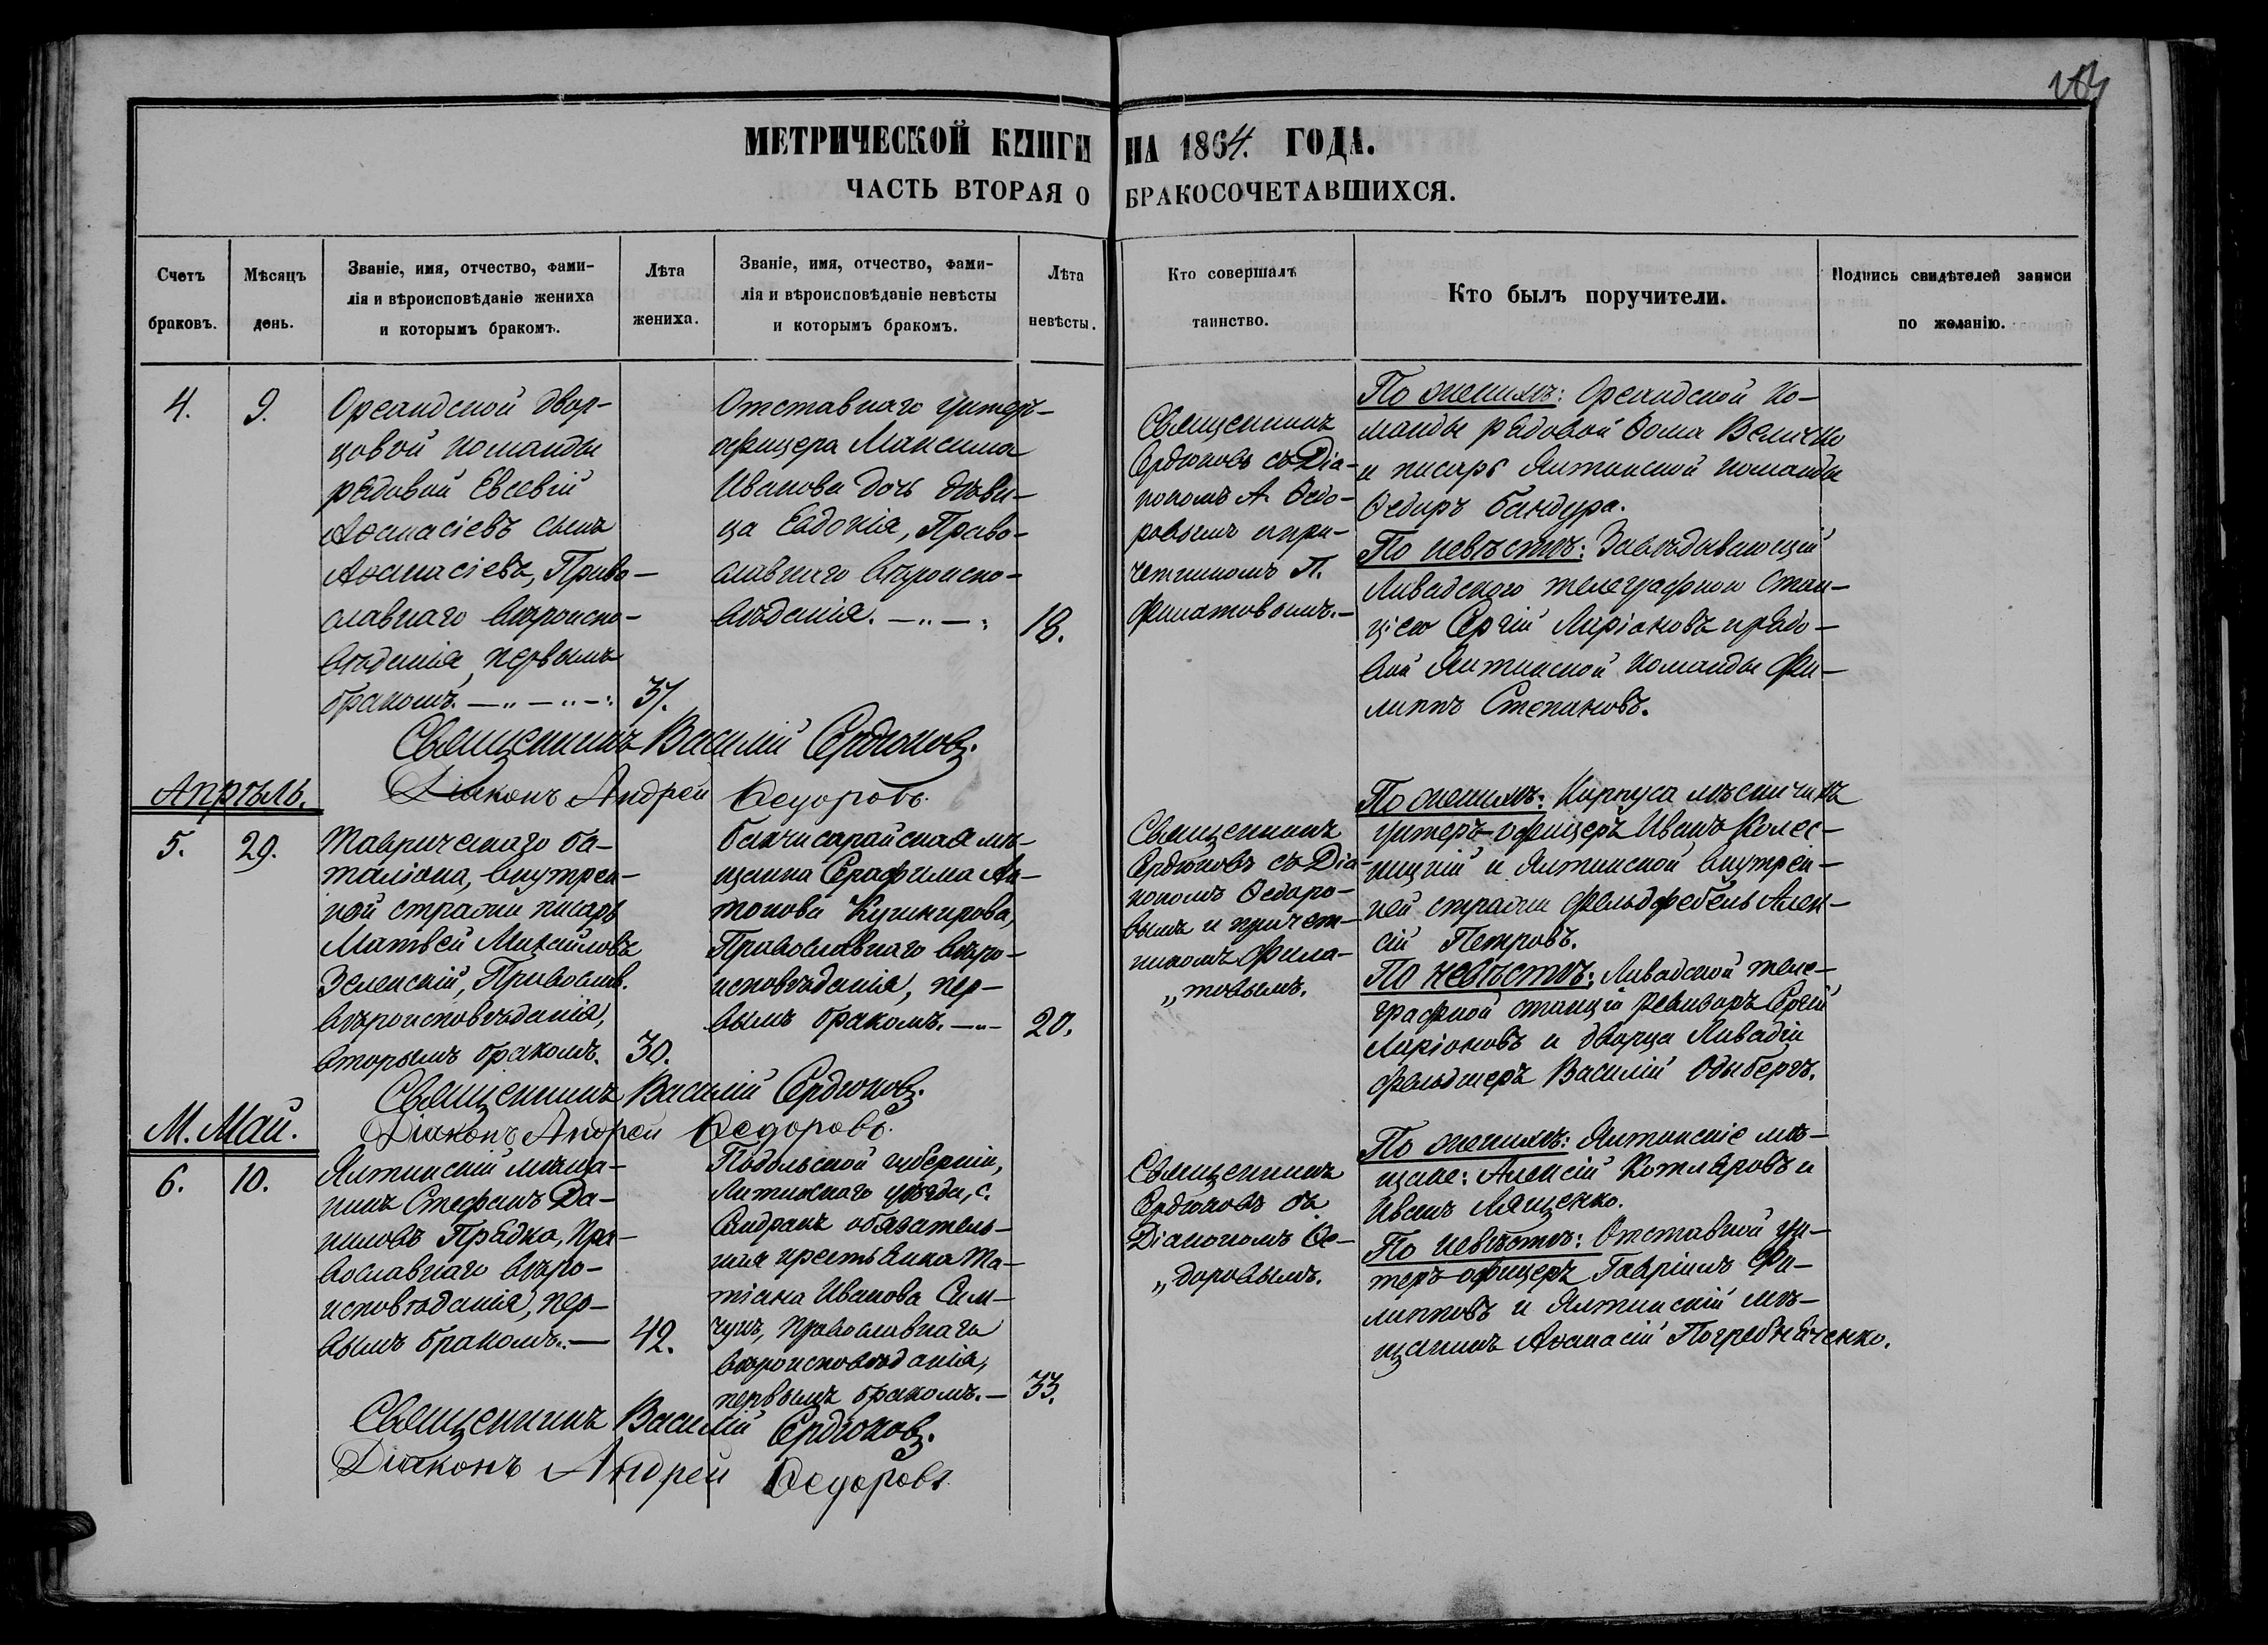 МЕТРИЧЕСКОЙ КНИГИ НА 1864. ГОДА.
ЧАСТЬ ВТОРАЯ О БРАКОСОЧЕТАВШИХСЯ.
Счетъ
браковъ.
Мѣсяцъ
день.
Званіе, имя, отчество, фами-
лія и вѣроисповѣданіе жениха
и которымъ бракомъ.
Лѣта
жениха.
Званіе, имя, отчество, фами-
лія и вѣроисповѣданіе невѣсты
и которымъ бракомъ.
Лѣта
невѣсты.
Кто совершалъ
таинство.
Кто былъ поручители.
Подпись свидѣтелей записи
по желанію.
4.
9.
Ореандской двор-
цовой команды
рядовой Евсевій
Аѳанасіевъ сынъ
Аѳанасіевъ, Право-
славнаго вѣроиспо-
вѣданія, первымъ
бракомъ.
37.
Отставнаго унтеръ-
офицера Максима
Иванова дочь дѣви-
ца Евдокія, Право-
славнаго вѣроиспо-
вѣданія.
18.
Священникъ
Сердюковъ съ Діа-
кономъ А. Ѳедо-
ровымъ и при-
четникомъ П.
Филатовымъ.
По женихѣ: Ореандской ко-
манды рядовой Ѳома Величко
и писарь Ялтинской команды
Ѳедоръ Бандура.
По невѣстѣ: Завѣдывающій
Ливадскою телеграфною стан-
ціею Сергій Ларіоновъ и рядо-
вой Ялтинской команды Фи-
липпъ Степановъ.
Священникъ Василій Сердюковъ.
Діаконъ Андрей Ѳедоровъ.
Апрѣль.
5.
29.
Таврическаго ба-
таліона, внутрен-
ной стражи писарь
Матвѣй Михайловъ
Зеленскій, Православ.
вѣроисповѣданія,
вторымъ бракомъ.
30.
Бахчисарайская мѣ-
щанка Серафима Ан-
тонова Кушнирова,
Православнаго вѣро-
исповѣданія, пер-
вымъ бракомъ.
20.
Священникъ
Сердюковъ съ Діа-
кономъ Ѳедоро-
вымъ и причет-
никомъ Фила-
„товымъ.
По женихѣ: Корпуса лѣсничихъ
унтеръ-офицеръ Иванъ Колес-
ницкій и Ялтинской внутрен-
ней стражи фельдфебель Алек-
сій Петровъ.
По невѣстѣ: Ливадской теле-
графной станціи ревизоръ Сергій
Ларіоновъ и дворца Ливадіи
фельдшеръ Василій
Священникъ Василій Сердюковъ.
Діаконъ Андрей Ѳедоровъ.
М. Май.
6.
10.
Ялтинскій мѣща-
нинъ Стефанъ Да-
ниловъ Прядка, Пра-
вославнаго вѣро-
исповѣданія, пер-
вымъ бракомъ.
42.
Подольской губерніи,
Литинскаго уѣзда, с.
обязатель-
ная крестьянка Та-
тіана Иванова Сем-
чукъ, православнаго
вѣроисповѣданія,
первымъ бракомъ.
33.
Священникъ
Сердюковъ съ
Діакономъ Ѳе-
„доровымъ.
По женихѣ: Ялтинскіе мѣ-
щане: Алексій Котляровъ и
Иванъ Лященко.
По невѣстѣ: Отставной ун-
теръ-офицеръ Гавріилъ Фи-
липповъ и Ялтинскій мѣ-
щанинъ Аѳанасій Погребняченко.
Священникъ Василій Сердюковъ.
Діаконъ Андрей Ѳедоровъ.